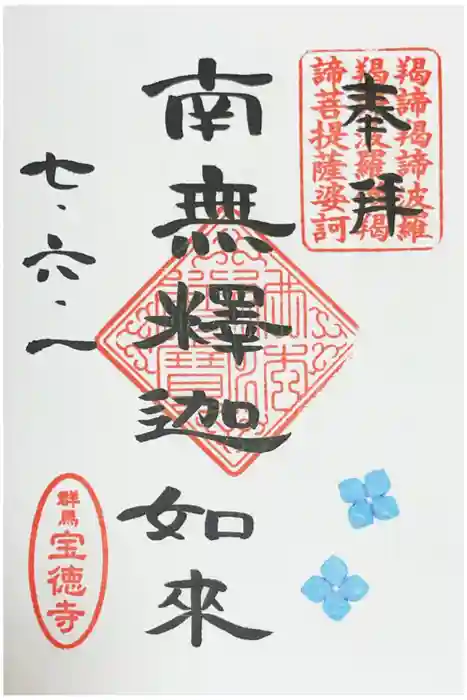 奉拝
羯諦羯諦波羅
羯諦波羅僧羯
諦菩提薩婆訶
南無釋迦如來
七、六、一
群馬
宝徳寺